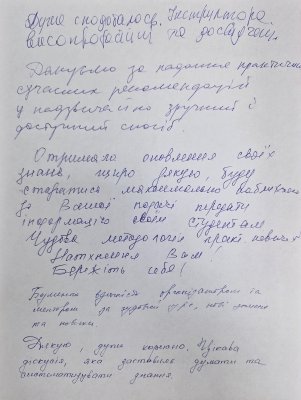 Дуже сподобалося. Інструктора
високопрофесійні та доступні.
Дякуємо за надання практичних
сучасних рекомендацій
у надзвичайно зручний і
доступний спосіб.
Отримала оновлення своїх
знань, щиро дякую, буду
старатись максимально наближено
до Вашої подачі передати
інформацію своїм студентам
Чудова методологія практ. навичок
Натхнення Вам!
Бережіть себе!
Безмежно вдячність організаторам та
менторам за чудовий курс, нові знання
та навички.
Дякую, дуже корисно. Цікава
дискусія, яка заставила думати та
систематизувати знання.